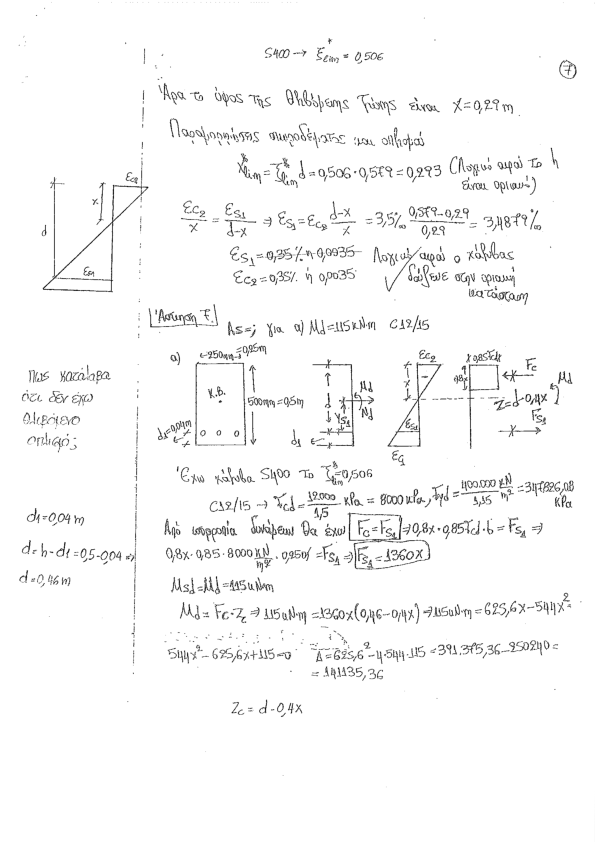 S400 → ξ*lim = 0,506
7
Άρα το ύψος της θλιβόμενης ζώνης είναι x = 0,29 m.
Παραμορφώσεις σκυροδέματος και οπλισμού
x*lim = ξ*lim d = 0,506 · 0,579 = 0,293 (Λογικό αφού το h
είναι οριακό)
εc2/x = εs1/(d-x) ⇒ εs1 = εc2 (d-x)/x = 3,5‰ (0,579-0,29)/0,29 = 3,4879‰
εs1 = 0,35% ή 0,0035 Λογικό αφού ο χάλυβας
εc2 = 0,35% ή 0,0035 ✓ δούλευε στην οριακή
κατάσταση
εc2
x
d
εs1
Άσκηση 7.
As=; για α) Md = 115 kN·m C12/15
α) 250mm = 0,25m
K.B.
500mm = 0,5m
d1=0,04m
d1
Ys1
Md
Nd
εc2
x
εs1
0,85fcd
0,8x
Fc
Md
Z = d-0,4x
Fs1
Πως κατάλαβα
ότι δεν έχω
θλιβόμενο
οπλισμό;
Έχω χάλυβα S400 το ξ*lim = 0,506
C12/15 → fcd = 12000/1,5 kPa = 8000 kPa, fyd = 400.000/1,15 kN/m² = 347.826,08
kPa
Από ισορροπία δυνάμεων θα έχω Fc = Fs1 ⇒ 0,8x · 0,85fcd · b = Fs1 ⇒
0,8x · 0,85 · 8000 kN/m² · 0,25m = Fs1 ⇒ Fs1 = 1360x
d1 = 0,04 m
d = h - d1 = 0,5 - 0,04 ⇒
d = 0,46 m
Msd = Md = 115 kN·m
Md = Fc · Zc ⇒ 115 kN·m = 1360x (0,46 - 0,4x) ⇒ 115 kN·m = 625,6x - 544x²
544x² - 625,6x + 115 = 0 Δ = 625,6² - 4·544·115 = 391.375,36 - 250240 =
= 141135,36
Zc = d - 0,4x